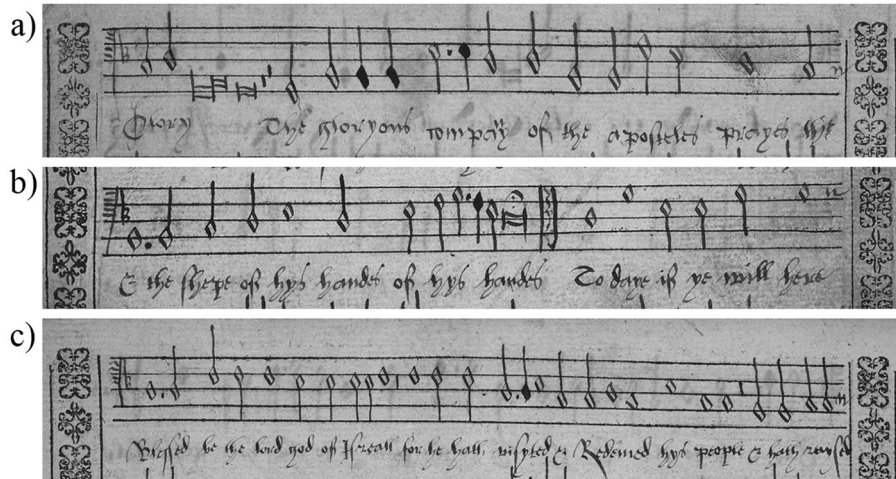 a)
Glory The gloryous company of the aposteles prayes the
b)
& the shepe of hys handes of hys handes To daye if ye will here
c)
Blessed be the lord god of Israell for he hath visyted & Redemed hys people & hath raysed